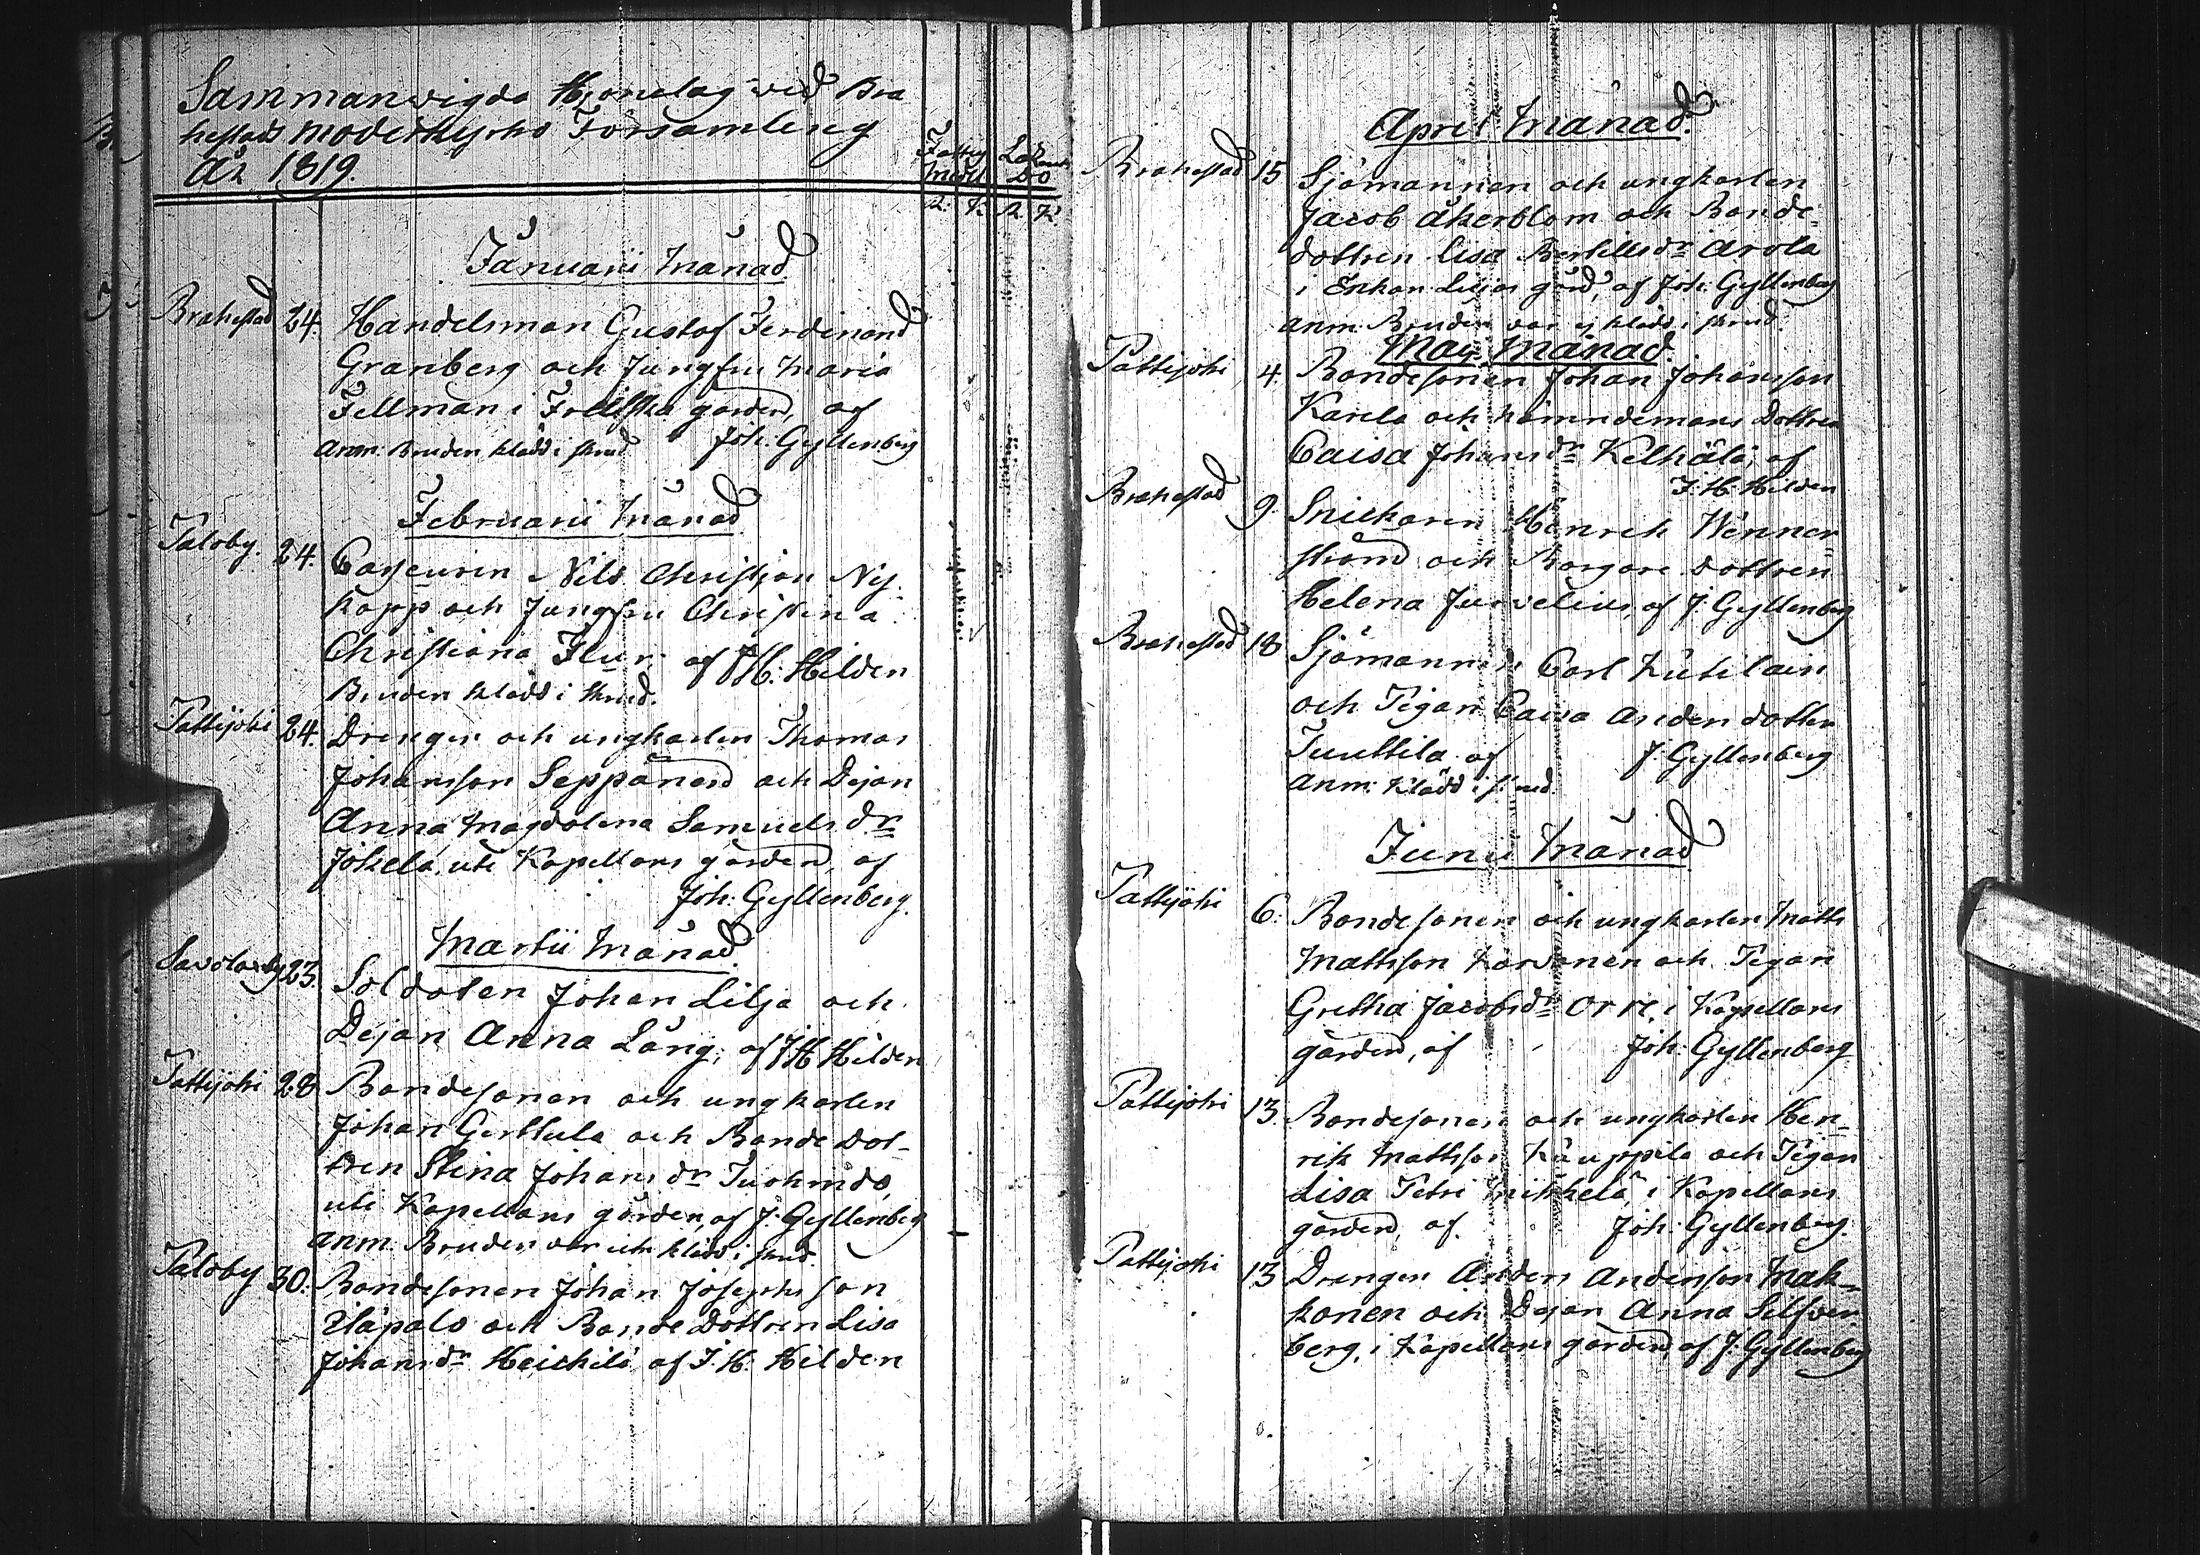 Sammanvigda Hjonelag vid Bra
hestads moderkyrko Församling
År 1819.
Fattig Laz
Medl. Do
R. K. R. K.
Januarii Månad
Brahestad 24. Handelsman Gustaf Ferdinand
Granberg och Jungfru Maria
Fellman i Frellska gården, af
Anm: Bruden klädd i skrud Joh: Gyllenberg
Februarii Månad
Saloby. 24. Nils Christjan Ny-
kopp och Jungfru Christina
Christiana Flur af J H: Hilden
Bruden klädd i skrud.
Pattijoki 24. Drengen och ungkarlen Thomas
Johansson Seppänen och Dejan
Anna Magdalena Samuels dr
Jokela, uti Kapellans gården, af
Joh: Gyllenberg.
Martii Månad
Savolaxby 23. Soldaten Johan Lilja och
Dejan Anna Lång; af J H Hilden
Pattijoki 28 Bondesonen och ungkarlen
Johan Gerttula och Bonde Dot-
tren Stina Johans dr Tuohindo
uti Kapellans gården, af J: Gyllenberg
Anm: Bruden var icke klädd i skrud.
Saloby 30. Bondesonen Johan Josephsson
Ylipalo och Bonde Dottren Lisa
Johans dr Heickilä af J. H. Hilden
April Månad.
Brahestad 15 Sjömannen och ungkarlen
Jacob Åkerblom och Bonde-
dottren Lisa Bertills dr Arola
i Enkan Lujas gård, af Joh: Gyllenberg
Anm: Bruden var ej klädd i skrud.
Maji Månad.
Pattijoki 4. Bondesonen Johan Johansson
Karela och nämndemans Dottren
Caisa Johans dr Kelhälä, af
J. H. Hilden
Brahestad 9. Snickaren Henrich Wenner-
ström och Borgare dottren
Helena Jurvelius, af J: Gyllenberg
Brahestad 18 Sjömannen Carl Kutilain
och Pigan Caisa Anders dotter
Tuuttila af J: Gyllenberg
Anm: klädd i skrud.
Junii Månad
Pattijoki 6. Bondesonen och ungkarlen Matts
Mattsson Karvonen och Pigan
Gretha Jacobs dr Orre, i Kapellans
gården, af Joh: Gyllenberg
Pattijoki 13. Bondesonen och ungkarlen Hen-
rik Mattsson Kauppila och Pigan
Lisa Petri Mikkelä, i Kapellans
gården, af Joh: Gyllenberg.
Pattijoki 13 Drengen Anders Andersson Mak-
konen och Dejan Anna Silfver-
berg, i Kapellans gården, af J: Gyllenberg